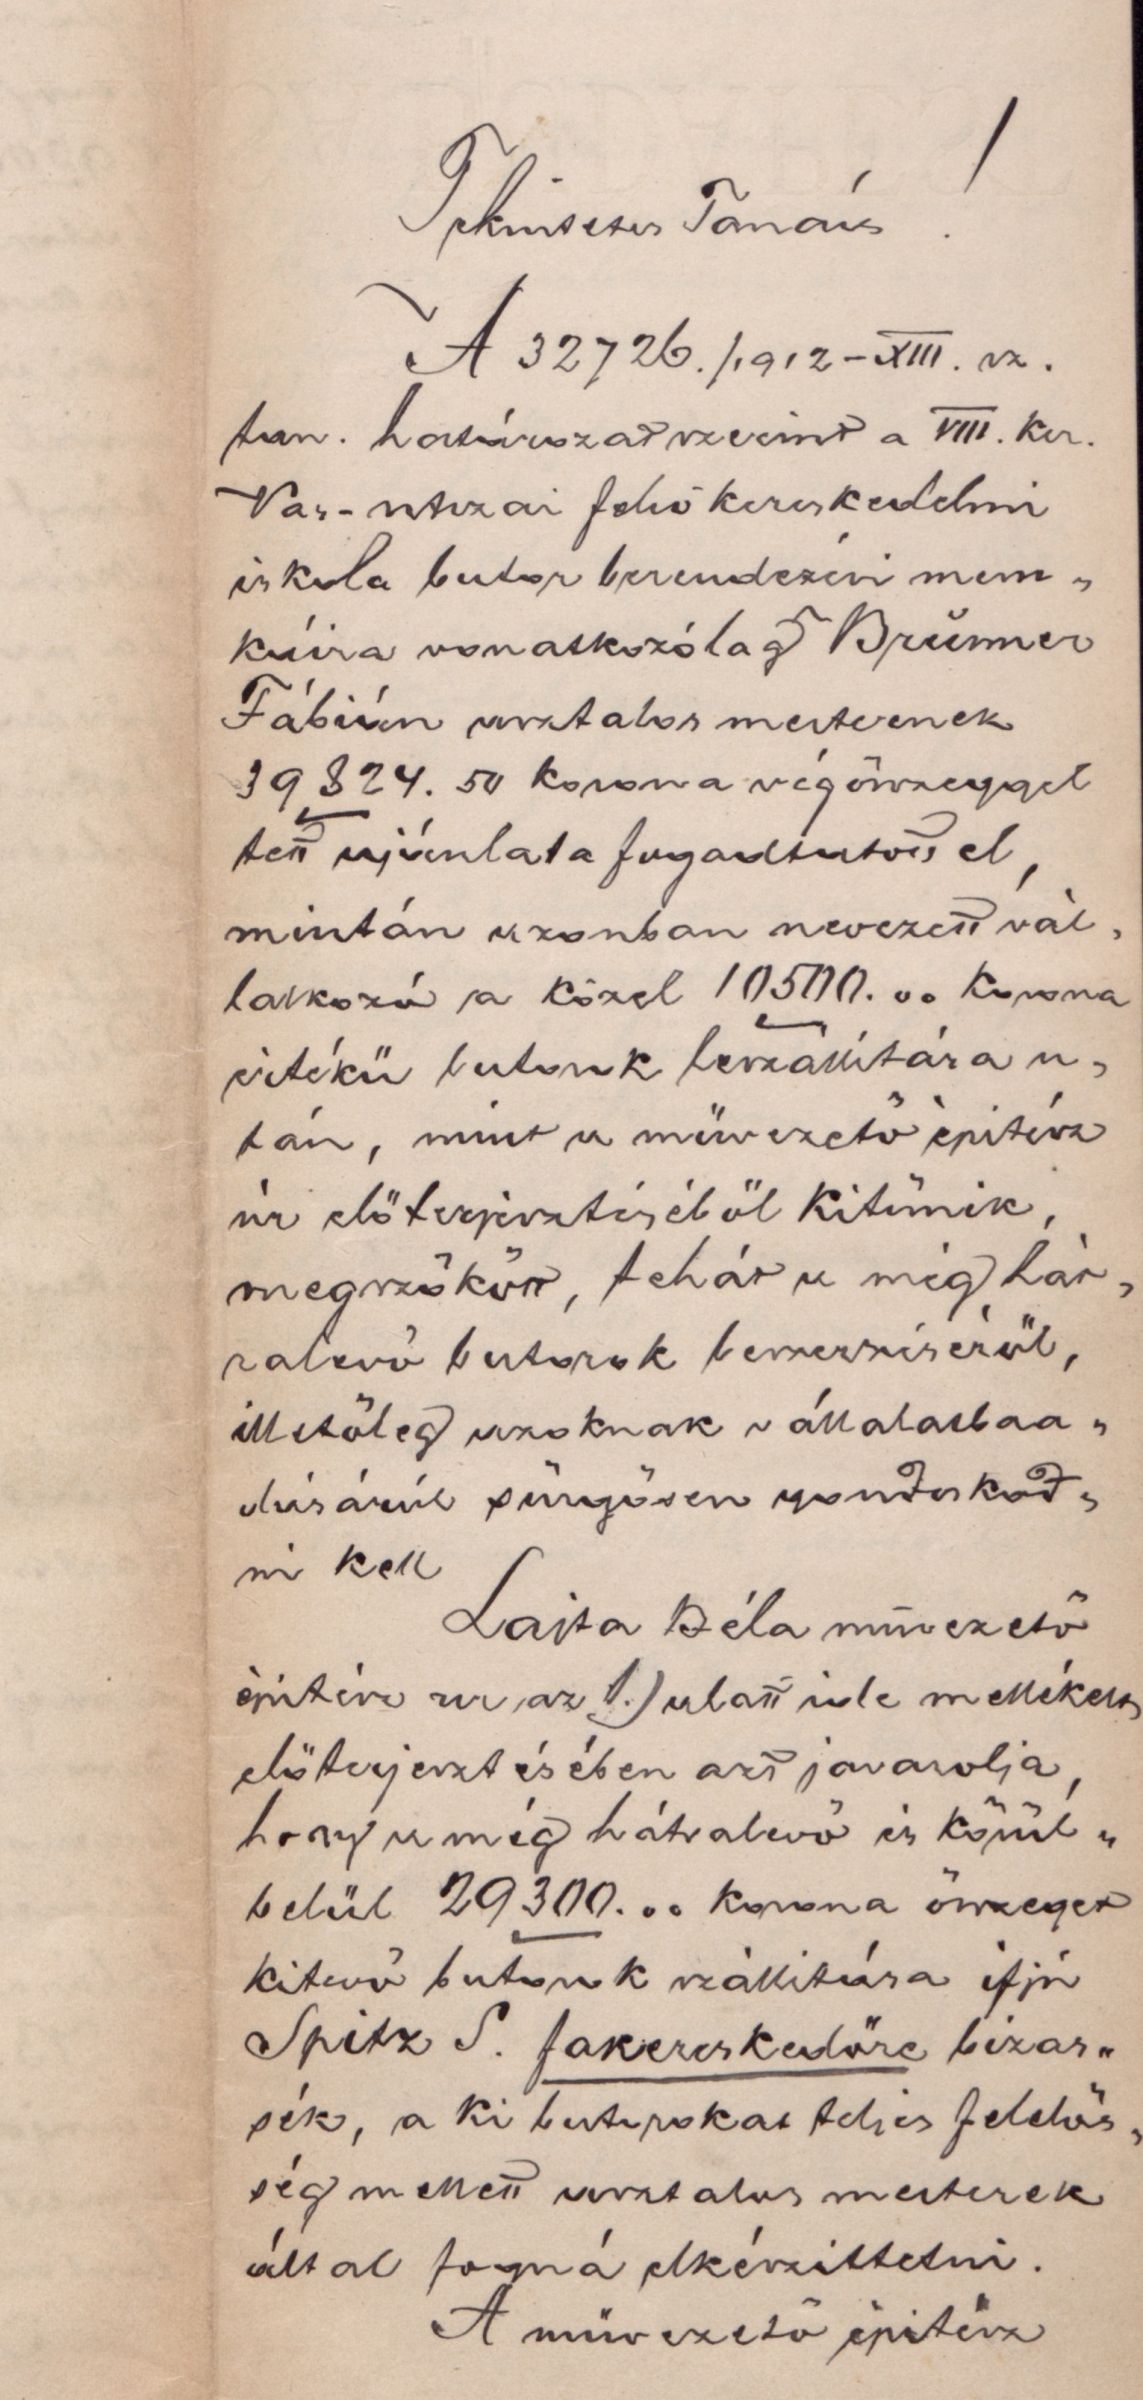 Tekintetes Tanács!
A 32726./1912-XIII. sz.
tan. határozat szerint a VIII. ker.
Vas-utczai felső kereskedelmi
iskola butor berendezési mun„
káira vonatkozólag Brünner
Fábián asztalos mesternek
39824.50 korona végösszeggel
tett ajánlata fogadtatott el,
miután azonban nevezett vál„
lalkozó a közel 10500.00 korona
értékü butorok beszállitása u„
tán, mint a müvezető épitész
úr előterjesztéséből kitünik,
megszökött, tehát a még hát„
ralevő butorok beszerzéséröl,
illetőleg azoknak vállalatbaa„
dásáról sürgősen gondoskod„
ni kell
Lajta Béla müvezető
épitész ur az 1.) alatt ide mellékelt
előterjesztésében azt javasolja,
hogy a még hátralevő és körül„
belül 29300.00 korona összeget
kitevő butorok szállitása ifjú
Spitz S. fakereskedőre bizas„
sék, a ki butorokat teljes felelős„
ség mellett asztalos mesterek
által fogná elkészittetni.
A müvezető épitész